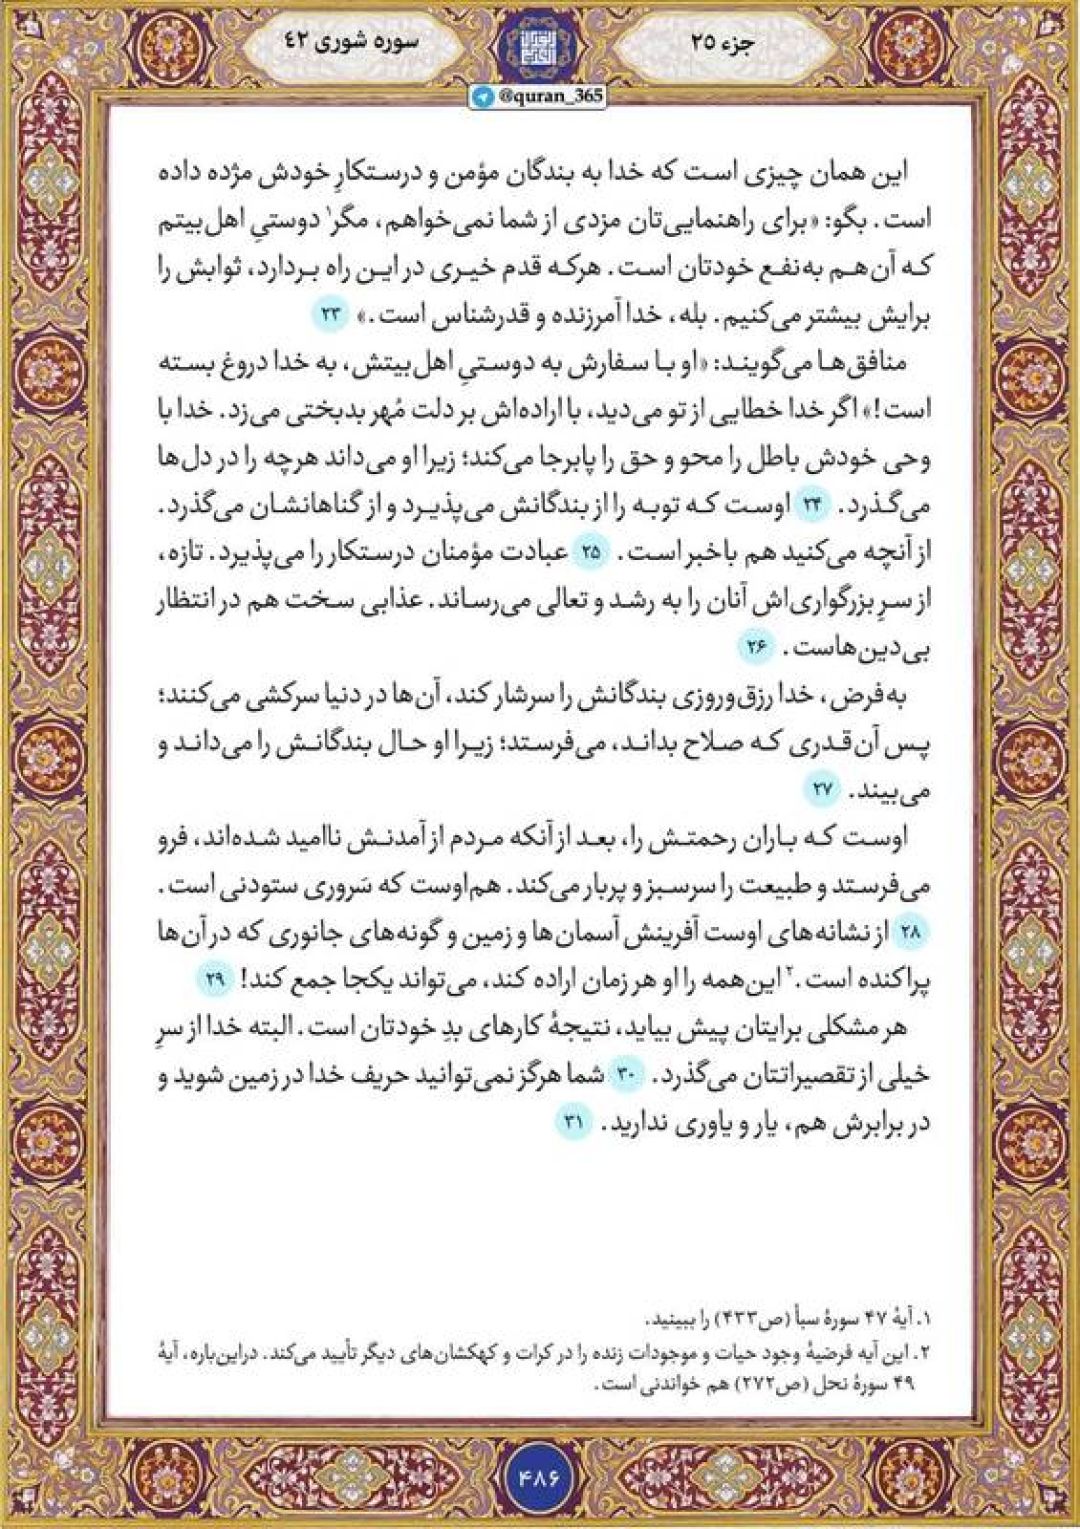 جزء ۲۵
سوره شوری ۴۲
@quran_365
این همان چیزی است که خدا به بندگان مؤمن و درستکارِ خودش مژده داده
است. بگو: «برای راهنمایی‌تان مزدی از شما نمی‌خواهم، مگر۱ دوستیِ اهل‌بیتم
که آن هم به‌نفع خودتان است. هرکه قدم خیری در این راه بردارد، ثوابش را
برایش بیشتر می‌کنیم. بله، خدا آمرزنده و قدرشناس است.» ۲۳
منافق‌ها می‌گویند: «او با سفارش به دوستیِ اهل‌بیتش، به خدا دروغ بسته
است!» اگر خدا خطایی از تو می‌دید، با اراده‌اش بر دلت مُهر بدبختی می‌زد. خدا با
وحی خودش باطل را محو و حق را پابرجا می‌کند؛ زیرا او می‌داند هرچه را در دل‌ها
می‌گذرد. ۲۴ اوست که توبه را از بندگانش می‌پذیرد و از گناهانشان می‌گذرد.
از آنچه می‌کنید هم باخبر است. ۲۵ عبادت مؤمنان درستکار را می‌پذیرد. تازه،
از سرِ بزرگواری‌اش آنان را به رشد و تعالی می‌رساند. عذابی سخت هم در انتظار
بی‌دین‌هاست. ۲۶
به‌فرض، خدا رزق‌وروزی بندگانش را سرشار کند، آن‌ها در دنیا سرکشی می‌کنند؛
پس آن قدری که صلاح بداند، می‌فرستد؛ زیرا او حال بندگانش را می‌داند و
می‌بیند. ۲۷
اوست که باران رحمتش را، بعد از آنکه مردم از آمدنش ناامید شده‌اند، فرو
می‌فرستد و طبیعت را سرسبز و پربار می‌کند. هم‌اوست که سَروری ستودنی است.
۲۸ از نشانه‌های اوست آفرینش آسمان‌ها و زمین و گونه‌های جانوری که در آن‌ها
پراکنده است.۲ این‌همه را او هر زمان اراده کند، می‌تواند یکجا جمع کند! ۲۹
هر مشکلی برایتان پیش بیاید، نتیجهٔ کارهای بدِ خودتان است. البته خدا از سرِ
خیلی از تقصیراتتان می‌گذرد. ۳۰ شما هرگز نمی‌توانید حریف خدا در زمین شوید و
در برابرش هم، یار و یاوری ندارید. ۳۱
۱. آیهٔ ۴۷ سورهٔ سبأ (ص۴۳۳) را ببینید.
۲. این آیه فرضیهٔ وجود حیات و موجودات زنده را در کرات و کهکشان‌های دیگر تأیید می‌کند. دراین‌باره، آیهٔ
۴۹ سورهٔ نحل (ص۲۷۲) هم خواندنی است.
۴۸۶